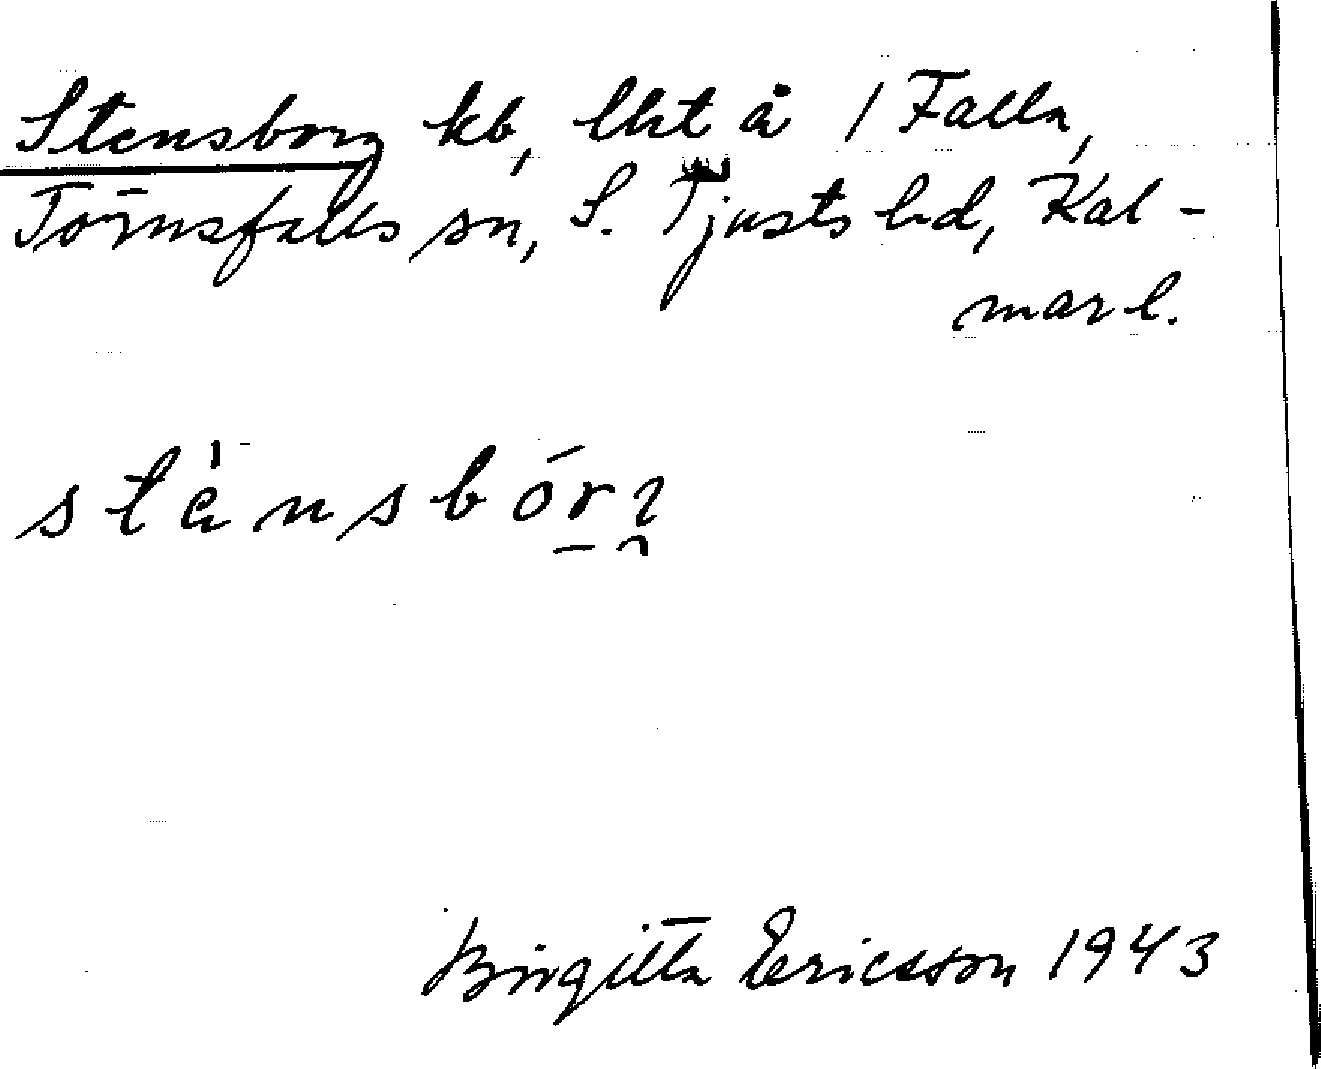 Stensborg kb, lht å 1 Falla,
Törnsfalls sn, S. Tjusts hd, Kal-
mar l.
Birgitta Ericsson 1943